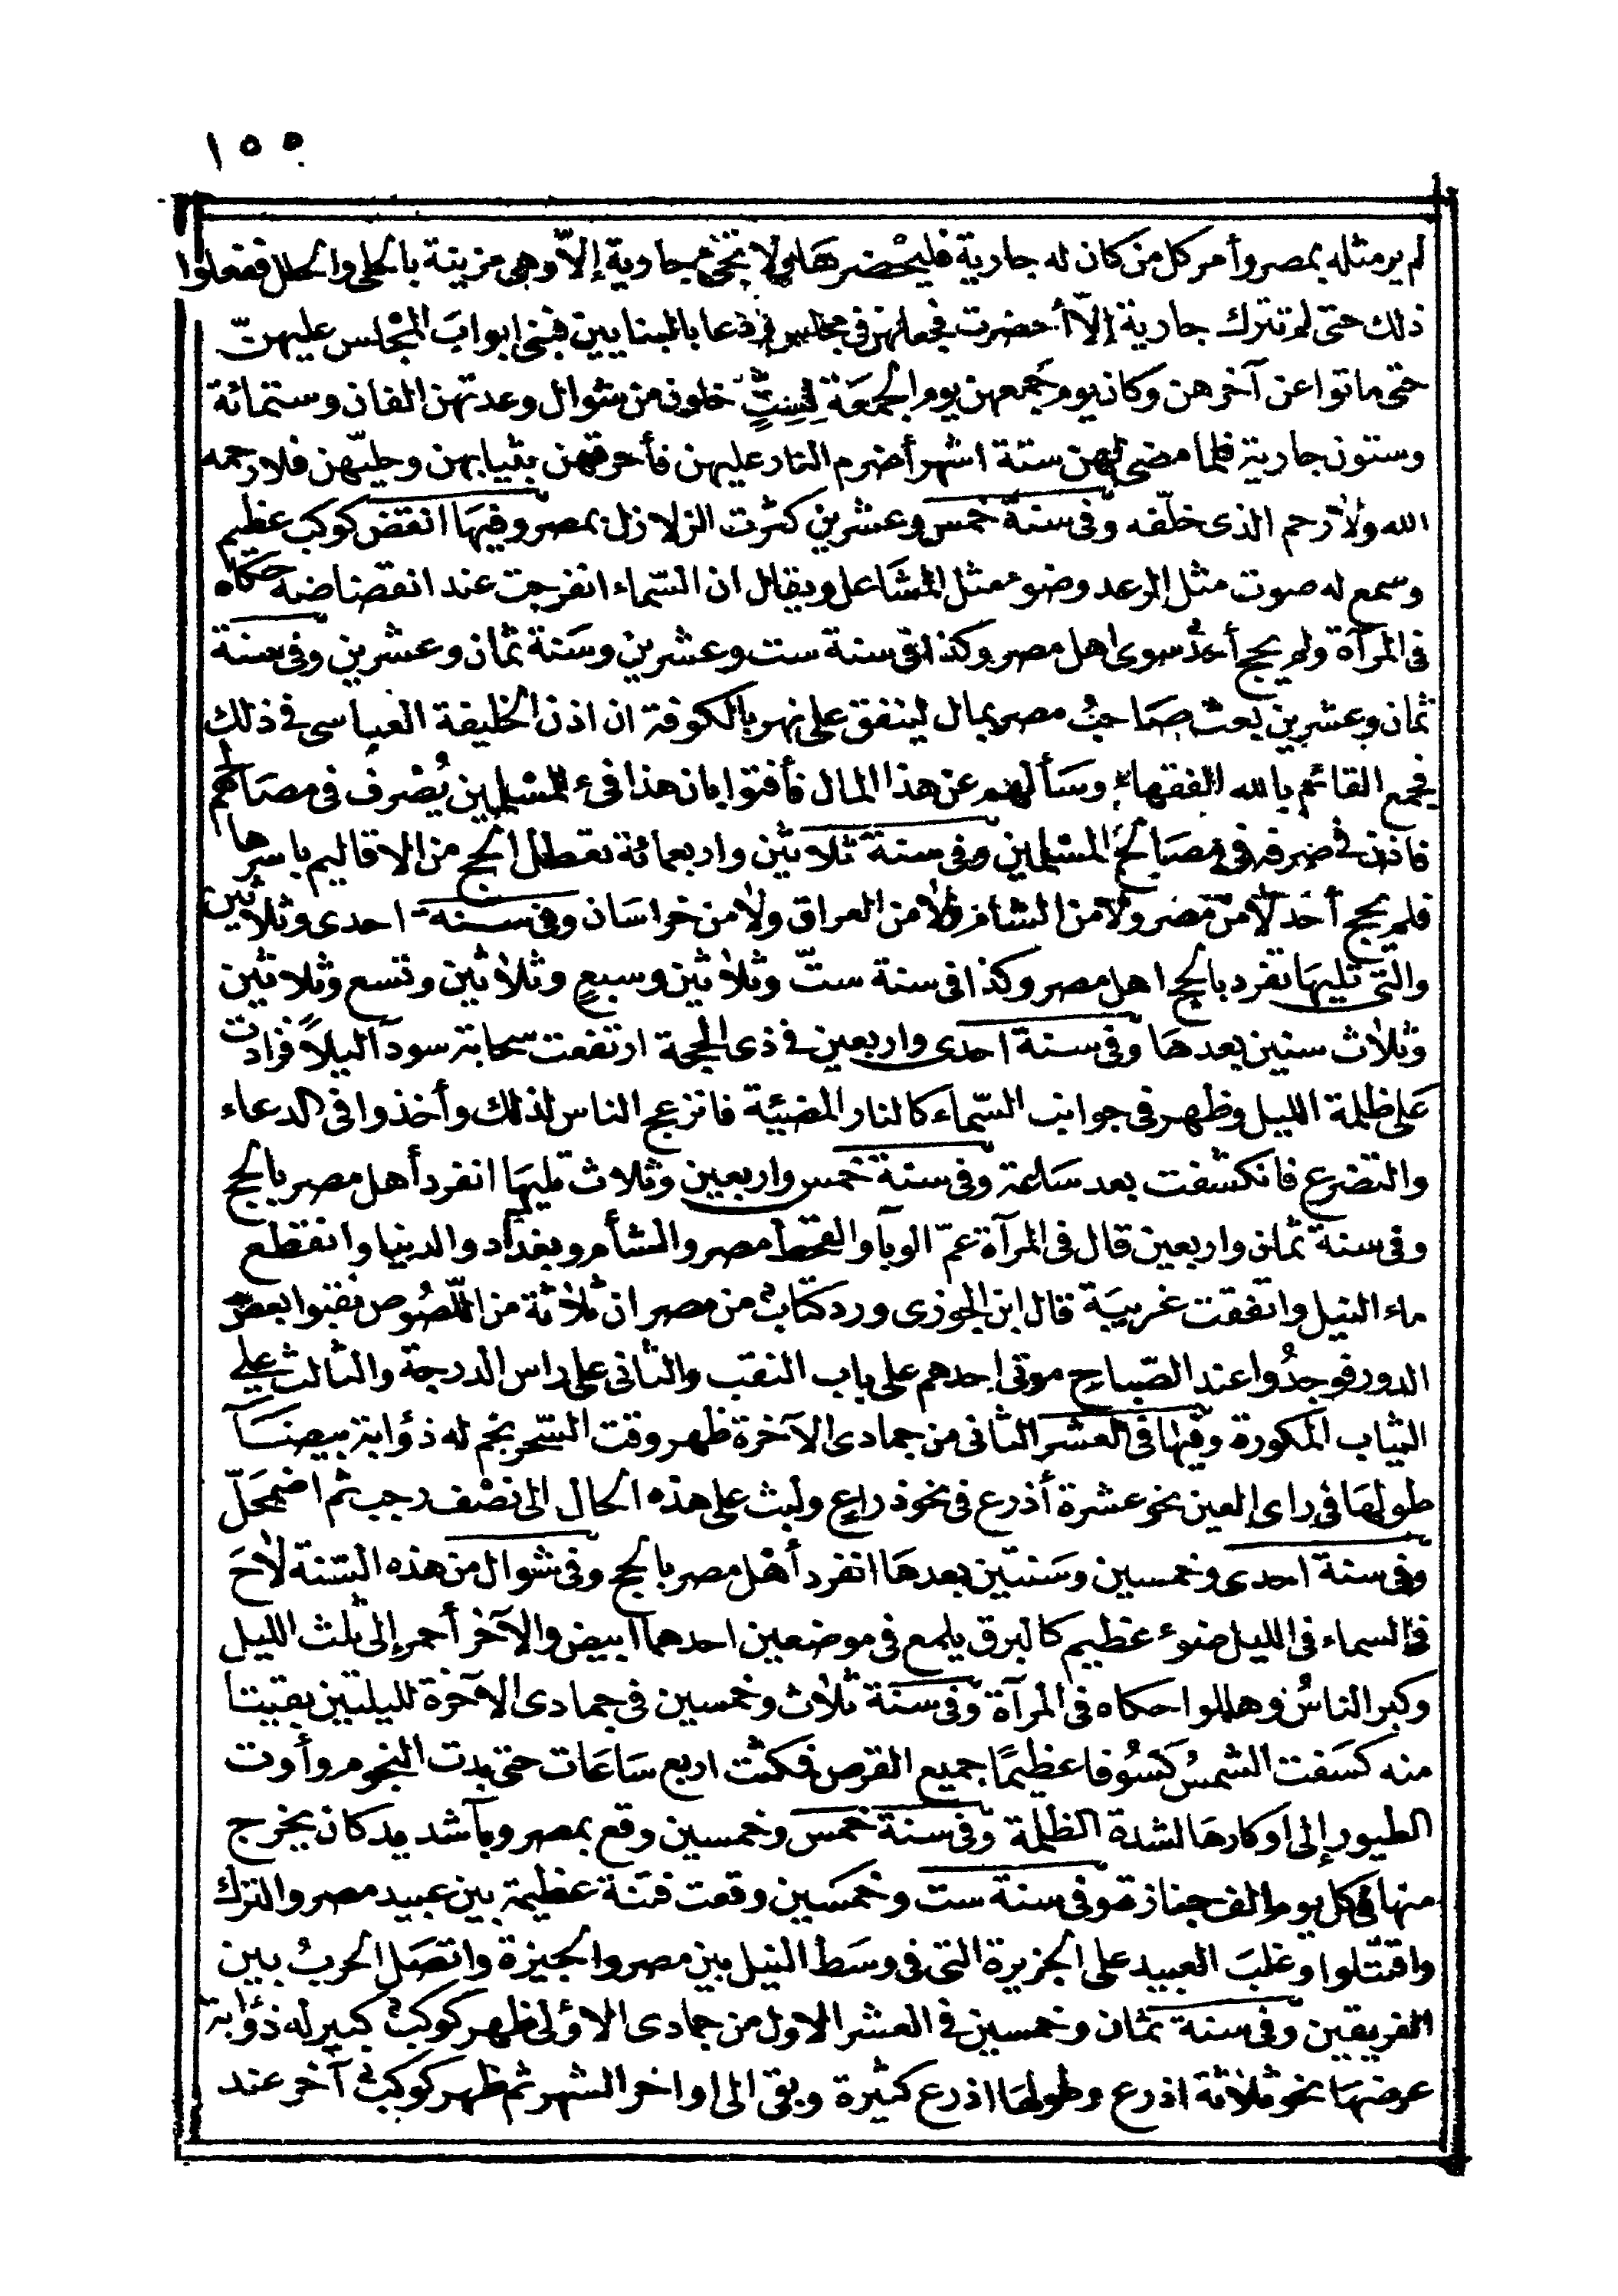 ١٥٥
لم ير مثله بمصر وأمر كل من كان له جارية فليحضرها ولا تجئ جارية إلاّ وهي مزينة بالحلي والحلل ففعلوا
ذلك حتى لم تترك جارية إلاّ أحضرت فجعلهن في مجلس فدعا بالبنايين فبنى ابوابَ المجْلس عليهنّ
حتى ماتوا عن آخرهن وكان يوم جَمعهن يوم الجمعَة لِسِتٍّ خلون من شوال وعدتهن الفان وستمائة
وستون جارية فلما مضى لهن ستة اشهر أضرم النار عليهن فأحرقهن بثيابهن وحليّهن فلا رحمه
الله ولا رحم الذى خلّفه وفى سنة خمس وعشرين كثرت الزلازل بمصر وفيهَا انقض كوكب عظيم
وسمع له صوت مثل الرعد وضوء مثل المشَاعل ويقال ان السّماء انفرجت عند انقضاضه حكاه
فى المرآة ولم يحج أحدٌ سوى اهل مصر وكذا فى سنة ست وعشرين وسَنة ثمان وعشرين وفى سنة
ثمان وعشرين بعث صَاحبُ مصر بمال لينفق على نهر بالكوفة ان اذن الخليفة العباسى فى ذلك
فجمع القائم بالله الفقهاء وسَألهم عن هذا المال فأفتوا بان هذا فىء للمسْلمين يُصْرف فى مصَالحهم
فاذن فى صرفه فى مصَالح المسْلمين وفى سنة ثلاثين واربعمائة تعطل الحج من الاقاليم باسرها
فلم يحج أحد لا من مصر ولا من الشام ولا من العراق ولا من خراسَان وفى سنة احدى وثلاثين
والتى تليهَا تفرد بالحج اهل مصر وكذا فى سنة ستّ وثلاثين وسبعٍ وثلاثين وتسع وثلاثين
وثلاث سنين بعدهَا وفى سنة احدى واربعين فى ذى الحجة ارتفعت سحابة سودآ ليلاً فزادت
عَلى ظلمة الليل وظهر فى جوانب السّماء كالنار المضيئة فانزعج الناس لذلك وأخذوا فى الدعاء
والتضرع فانكشفت بعد سَاعة وفى سنة خمس واربعين وثلاث تليهَا انفرد أهل مصر بالحج
وفى سنة ثمان واربعين قال فى المرآة عمّ الوبآ والقحط مصر والشأم وبغداد والدنيا وانقطع
ماء النيل واتفقت غريبَة قال ابن الجوزى ورد كتابٌ من مصر ان ثلاثة من اللّصُوص نقبوا بعض
الدور فوجدُوا عند الصّباح موتى احدهم على باب النقب والثانى على راس الدرجة والثالث على
الثياب المكورة وفيها فى العشر الثانى من جمادى الآخرة ظهر وقت السّحر نجم له ذؤابة بيضَآ
طولهَا فى راى العين نحو عشرة أذرع فى نحو ذراع ولبث على هذه الحال الى نصْف رجب ثم اضمَحلّ
وفى سنة احدى وخمسين وسَنتين بعدهَا انفرد أهْل مصر بالحج وفى شوال من هذه السّنة لاحَ
فى السماء فى الليل ضوء عظيم كالبرق يلمع فى موضعين احدهما ابيض والآخر أحمر إلى ثلث الليل
وكبر الناسُ وهللوا حكاه فى المرآة وفى سنة ثلاث وخمسين فى جمادى الآخرة لليلتين بقيتا
منه كسَفت الشمسُ كسُوفا عظيمًا جميع القرص فمكثت اربع سَاعَات حتى بدت النجوم وأوت
الطيور إلى أوكارهَا لشدة الظلمة وفى سنة خمس وخمسين وقع بمصر وبآ شديد كان يخرج
منها فى كل يوم الف جنازة وفى سنة ست وخمسَين وقعت فتنة عظيمة بين عبيد مصر والترك
واقتتلوا وغلبَ العبيد على الجزيرة التى فى وسَط النيل بين مصر والجيزة واتصَل الحربُ بين
الفريقين وفى سنة ثمان وخمسين فى العشر الاول من جمادى الاولى ظهر كوكبٌ كبير له ذؤابة
عرضهَا نحو ثلاثة اذرع وطولهَا اذرع كثيرة وبقى الى اواخر الشهر ثم ظهر كوكبٌ آخر عند